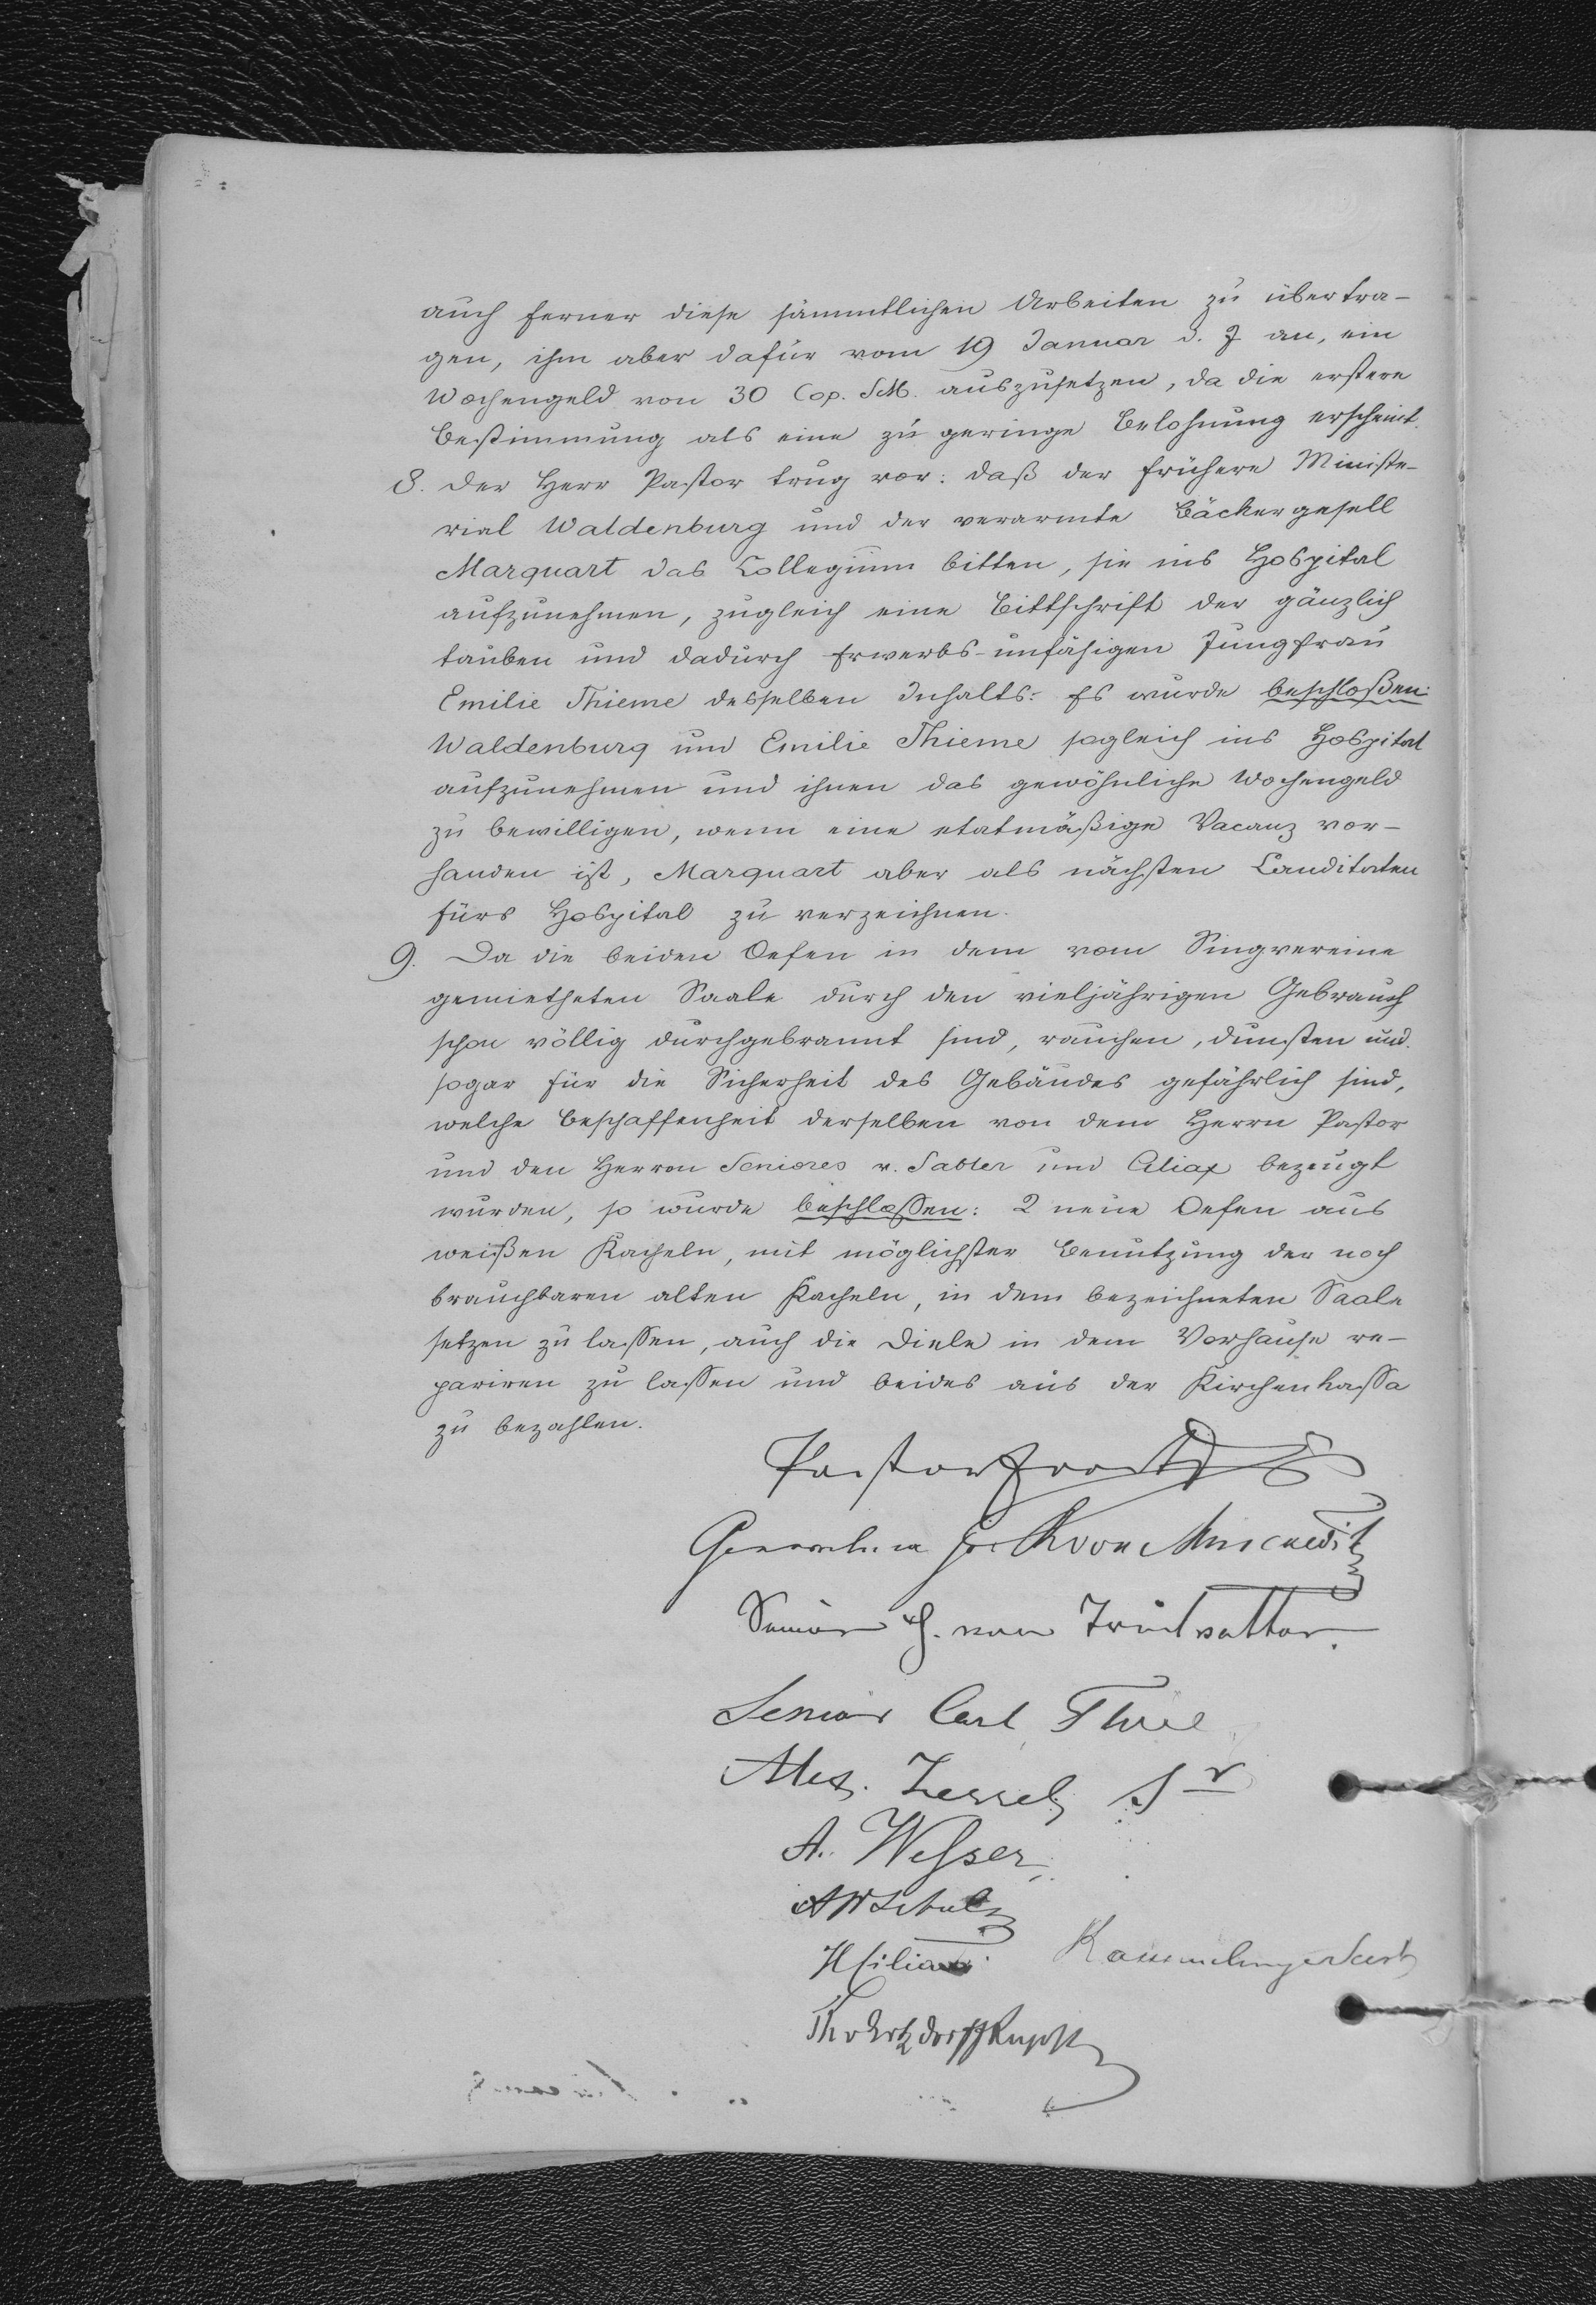 auch ferner diese sämmtlichen Arbeiten zu übertra-
gen, ihm aber dafür vom 19 Januar d. J an, ein
Wochengeld von 30 Cop. SM. auszusetzen, da die erstere
Bestimmung als eine zu geringe Belohnung erscheint.
8. Der Herr Pastor trug vor: daß der frühere Ministe-
rial Waldenburg und der verarmte Bäckergesell
Marquart das Collegium bitten, sie ins Hospital
aufzunehmen, zugleich eine Bittschrift der gänzlich
tauben und dadurch Erwerbs-unfähigen Jungfrau
Emilie Thieme desselben Inhalts: Es wurde beschloßen:
Waldenburg und Emilie Thieme sogleich ins Hospital
aufzunehmen und ihnen das gewöhnliche Wochengeld
zu bewilligen, wenn eine etatmäßige Vacanz vor-
handen ist, Marquart aber als nächsten Canditaten
fürs Hospital zu verzeichnen.
9. Da die beiden Oefen in dem vom Singvereine
gemietheten Saale durch den vieljährigen Gebrauch
schon völlig durchgebrannt sind, rauchen, dunsten und
sogar für die Sicherheit des Gebäudes gefährlich sind,
welche Beschaffenheit derselben von dem Herrn Pastor
und den Herren Seniores v. Sabler und Ciliax bezeugt
wurden, so wurde beschloßen: 2 neue Oefen aus
weißen Kacheln, mit möglichster Benutzung der noch
brauchbaren alten Kacheln, in dem bezeichneten Saale
setzen zu laßen, auch die Diele in dem Vorhause re-
pariren zu laßen und beides aus der Kirchenkaßa
zu bezahlen.
Pastor
von
Senior von
Senior Carl Thiel
Alex. Sr
A.
AW Schulz
H Ciliax